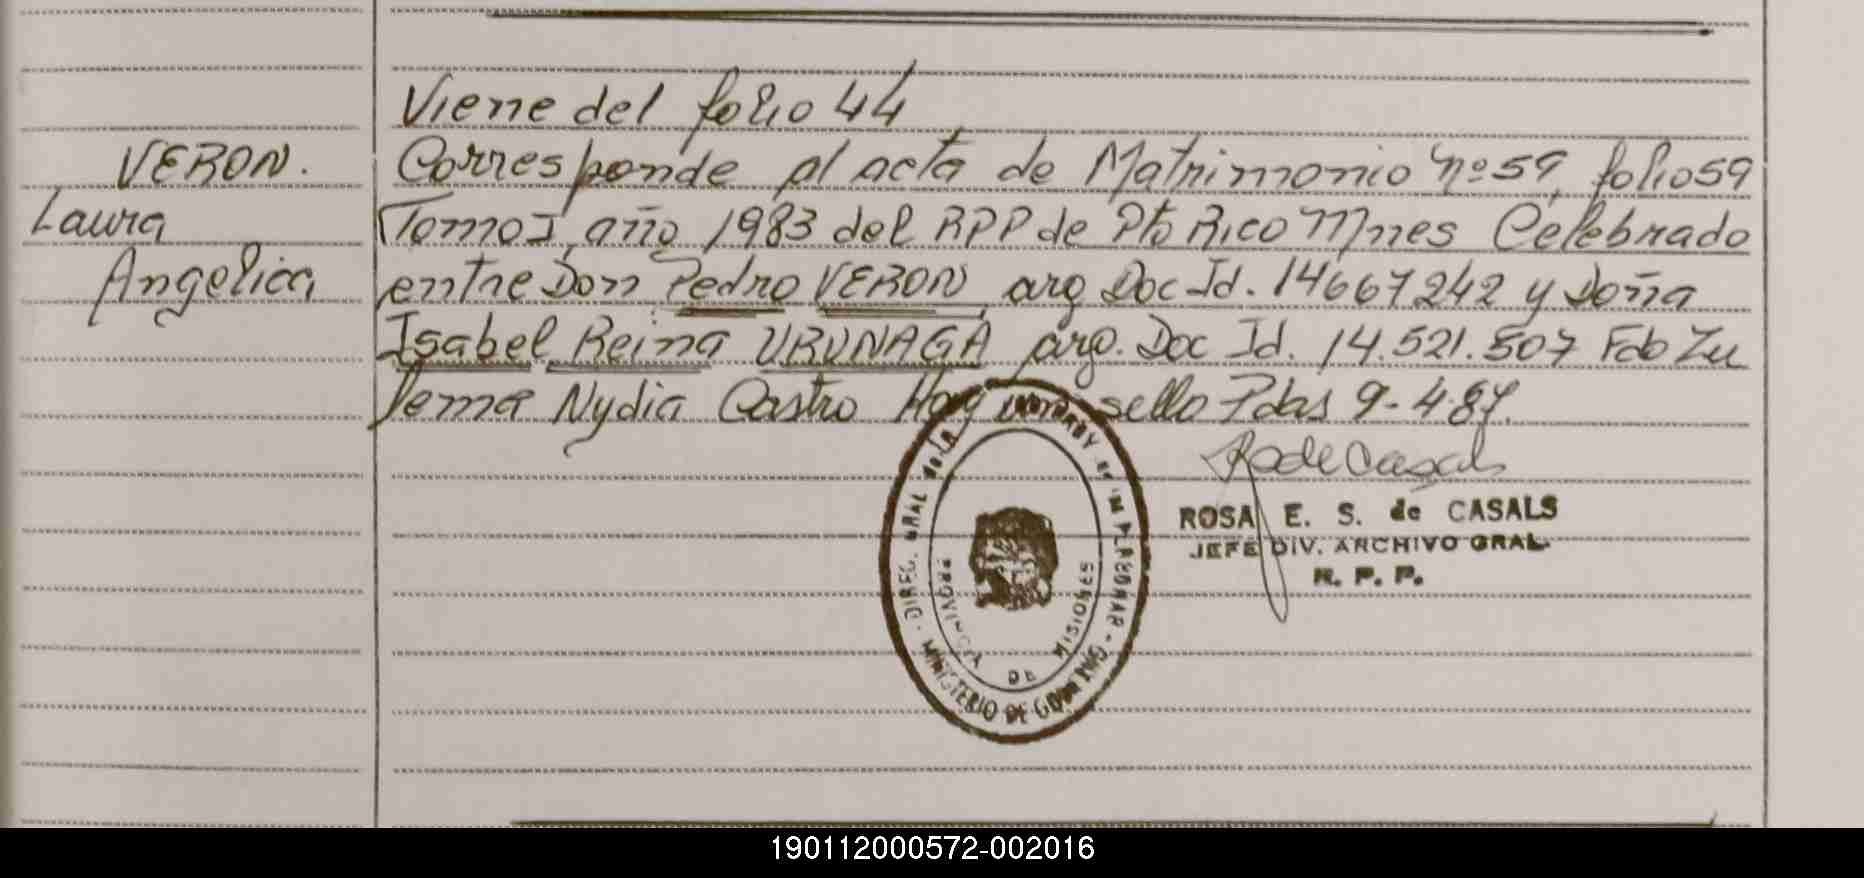 Viene del folio 44
VERON.
Laura
Angelica
Corresponde al acta de Matrimonio Nº 59, folio 59
Tomo I, año 1983 del RPP de Pto Rico Mnes Celebrado
entre Don Pedro VERON arg Doc Id. 14667242 y Doña
Isabel Reina URUNAGA arg. Doc Id. 14.521.507 Fdo Zu
lema Nydia Castro Hay un sello Pdas 9-4-87.
RdeCasals
ROSA E. S. de CASALS
JEFE DIV. ARCHIVO GRAL.
R. P. P.
DIREC. GRAL
MINISTERIO DE GOBIERNO
PROVINCIA DE MISIONES
190112000572-002016